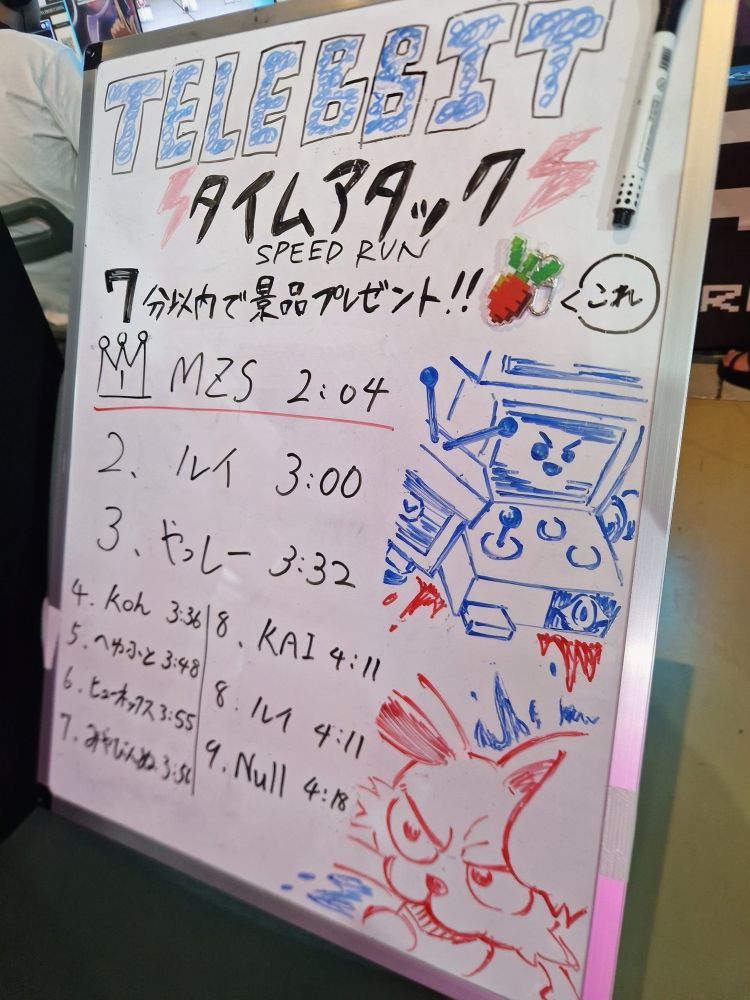 TELEBBIT
タイムアタック
SPEED RUN
7分以内で景品プレゼント!!
これ
1 MZS 2:04
2、ルイ 3:00
3、やっしー 3:32
4. Koh 3:36
5. へやふと 3:48
6. ヒューネックス 3:55
7. みやびんぬ 3:56
8、KAI 4:11
8. ルイ 4:11
9. Null 4:18